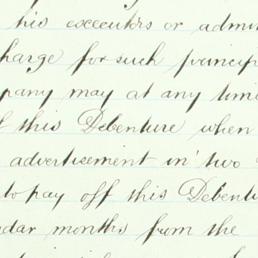 his executors or admin
harge for such princip
pany may at any time
this Debenture when
advertisement in two
to pay off this Debent
dar months from the